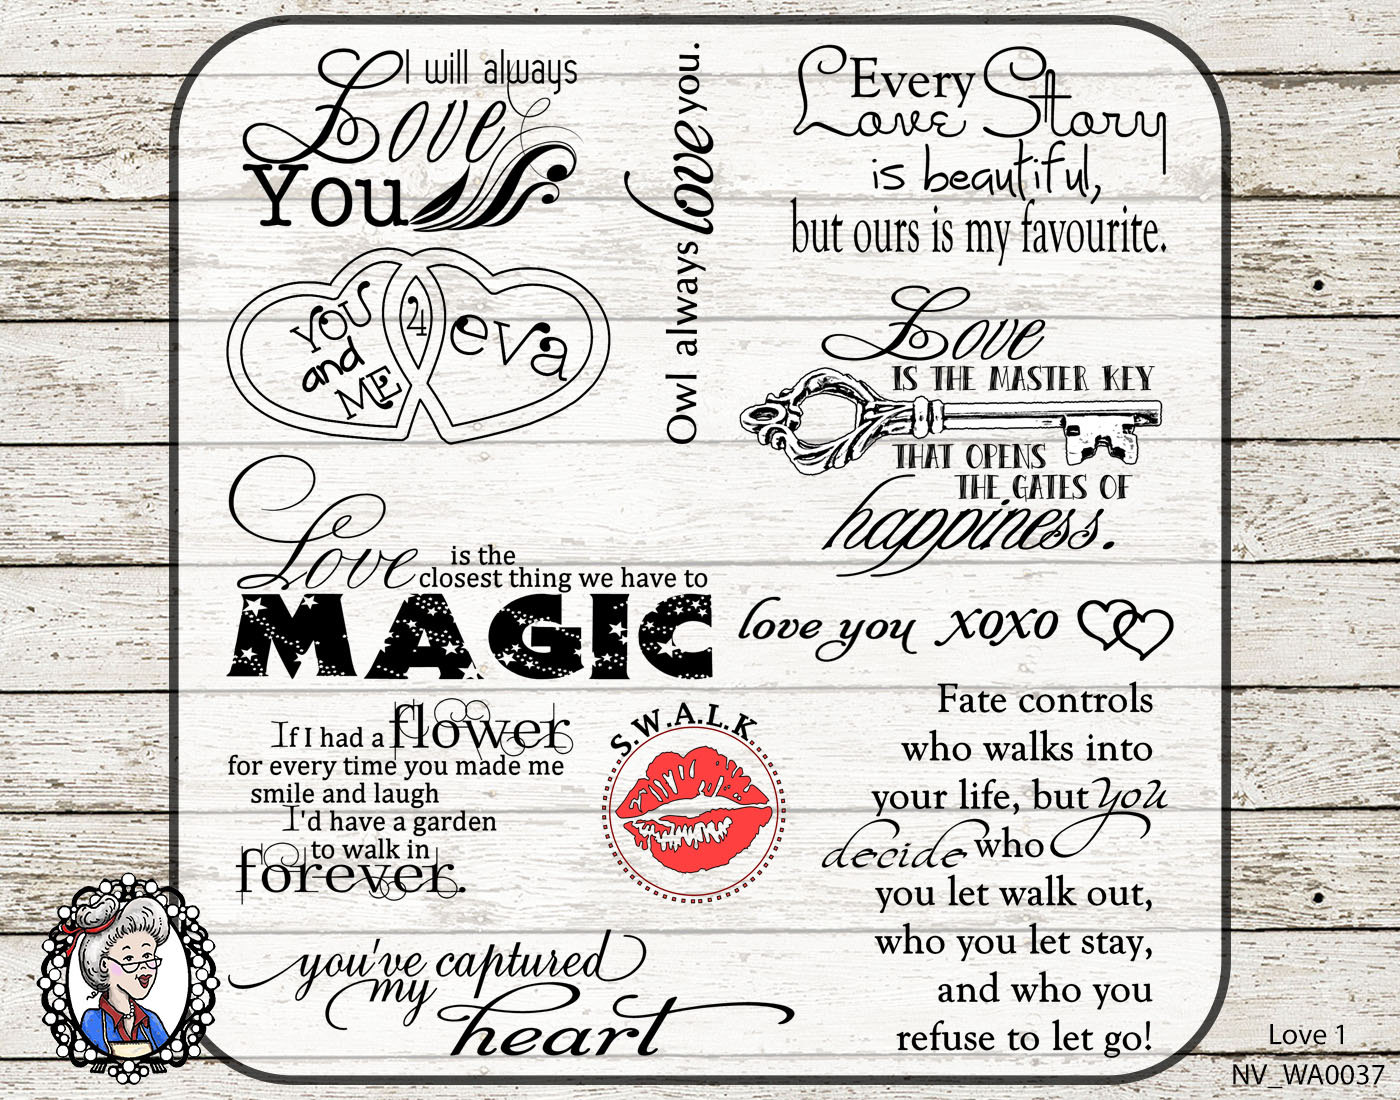 I will always
Love
You
Owl always love you.
Every
Love Story
is beautiful,
but ours is my favourite.
YOU
and
ME
4
eva
Love
IS THE MASTER KEY
THAT OPENS
THE GATES OF
happiness.
Love is the
closest thing we have to
MAGIC
love you xoxo
If I had a flower
for every time you made me
smile and laugh
I'd have a garden
to walk in
forever.
S.W.A.L.K
Fate controls
who walks into
your life, but you
decide who
you let walk out,
who you let stay,
and who you
refuse to let go!
you've captured
my
heart
Love 1
NV_WA0037